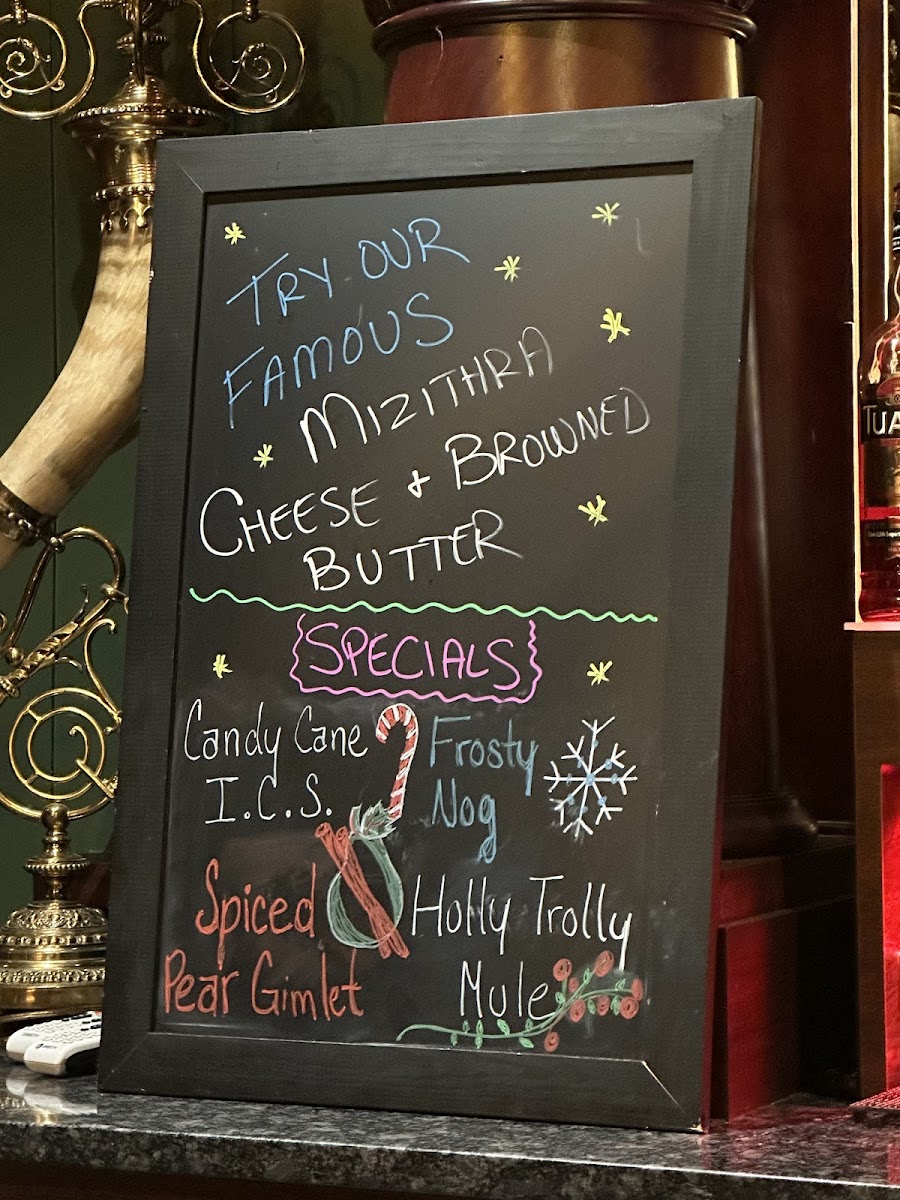 TRY OUR
FAMOUS
MIZITHRA
CHEESE + BROWNED
BUTTER
SPECIALS
Candy Cane
I.C.S.
Frosty
Nog
Spiced
Pear Gimlet
Holly Trolly
Mule
TUA